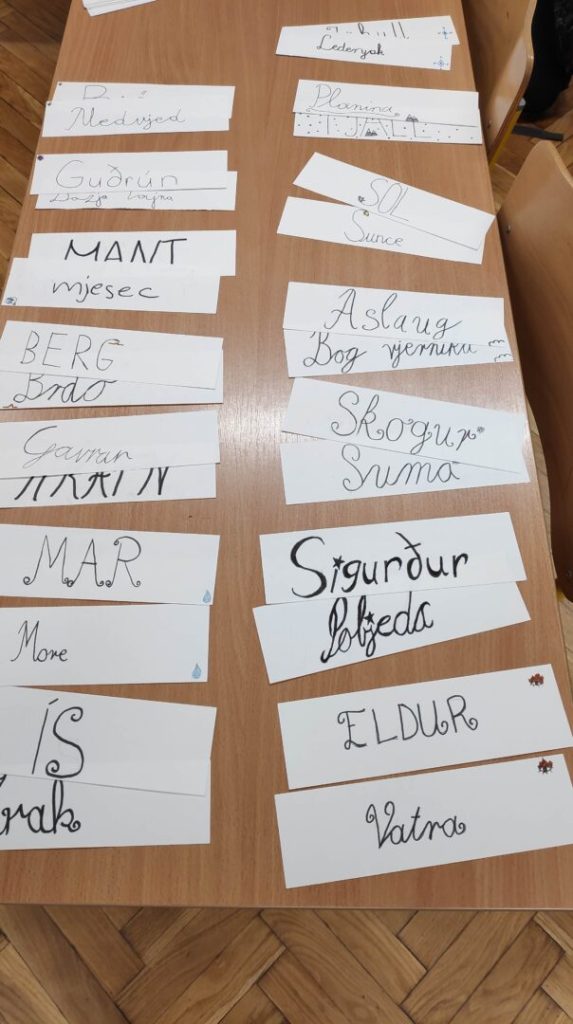 Medvjed
Guðrún
Božja tajna
MANT
mjesec
BERG
Brdo
Gavran
HRAFN
MAR
More
ÍS
rak
Ledenjak
Planina
FJALL
SOL
Sunce
Aslaug
Bog vjerniku
Skogur
Šuma
Sigurður
Pobjeda
ELDUR
Vatra